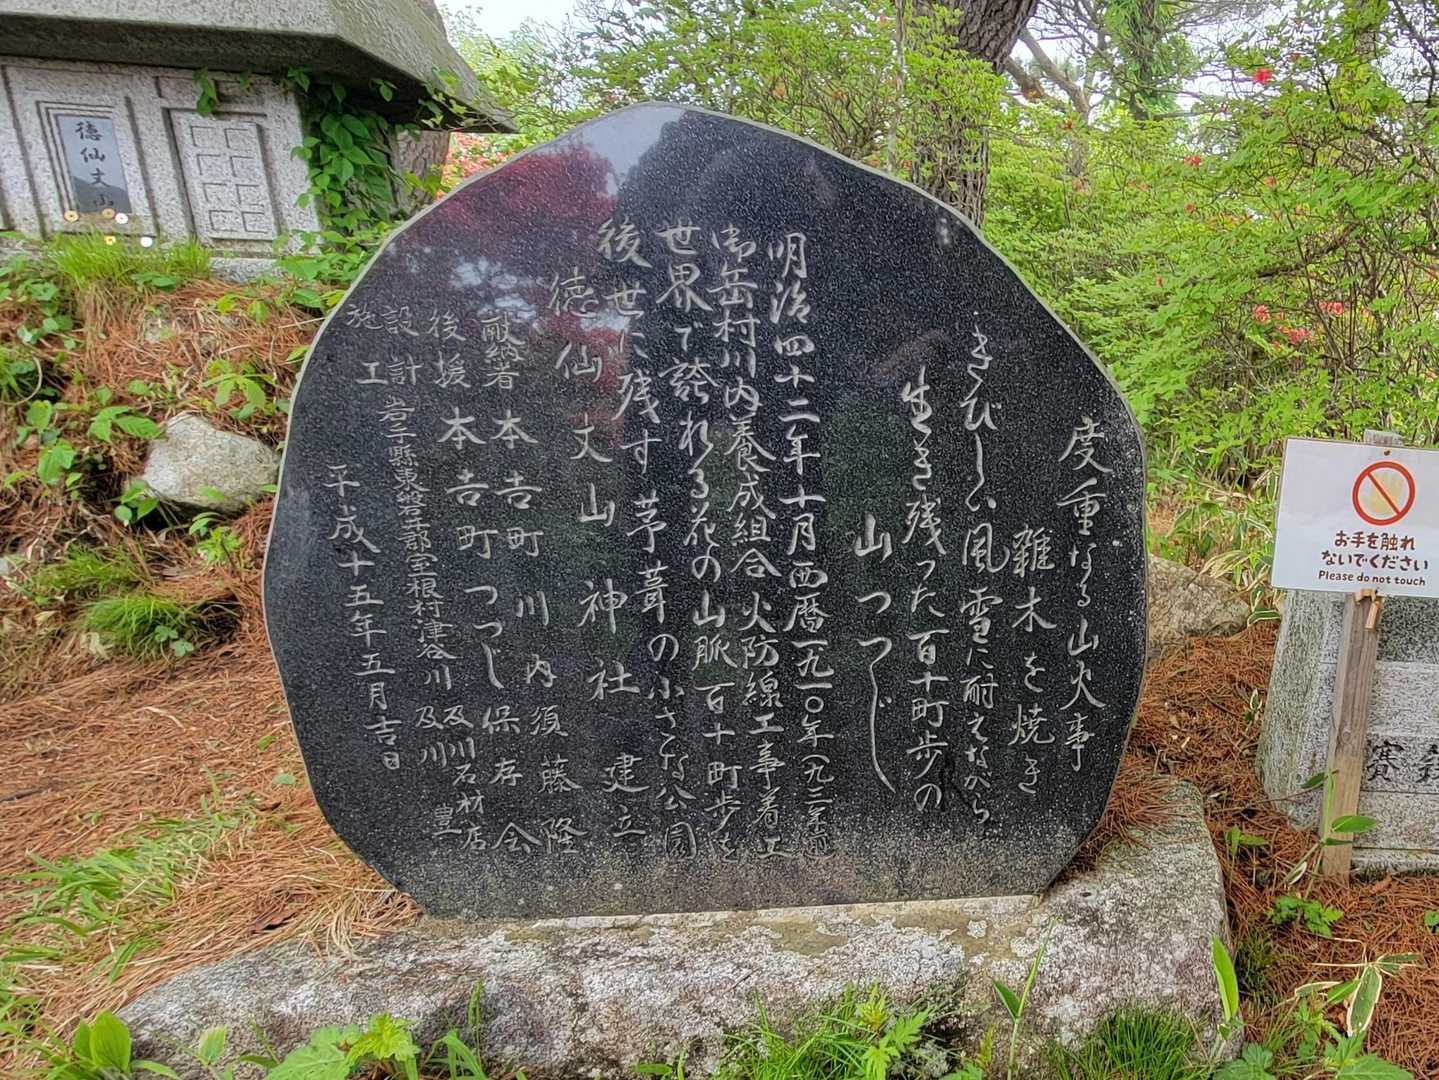 度重なる山火事
雑木を焼き
きびしい風雪に耐えながら
生き残った百十町歩の
山つつじ
明治四十二年十月西暦一九一〇年(九三年前)
御岳村川内養成組合火防線工事着工
世界で誇れる花の山脈百十町歩を
後世に残す茅葺の小さな公園
徳仙丈山神社建立
献納者本吉町川内須藤隆
後援本吉町つつじ保存会
設計岩手縣東磐井郡室根村津谷川及川石材店
施工及川豊
平成十五年五月吉日
徳仙丈山
お手を触れ
ないでください
Please do not touch
賽銭